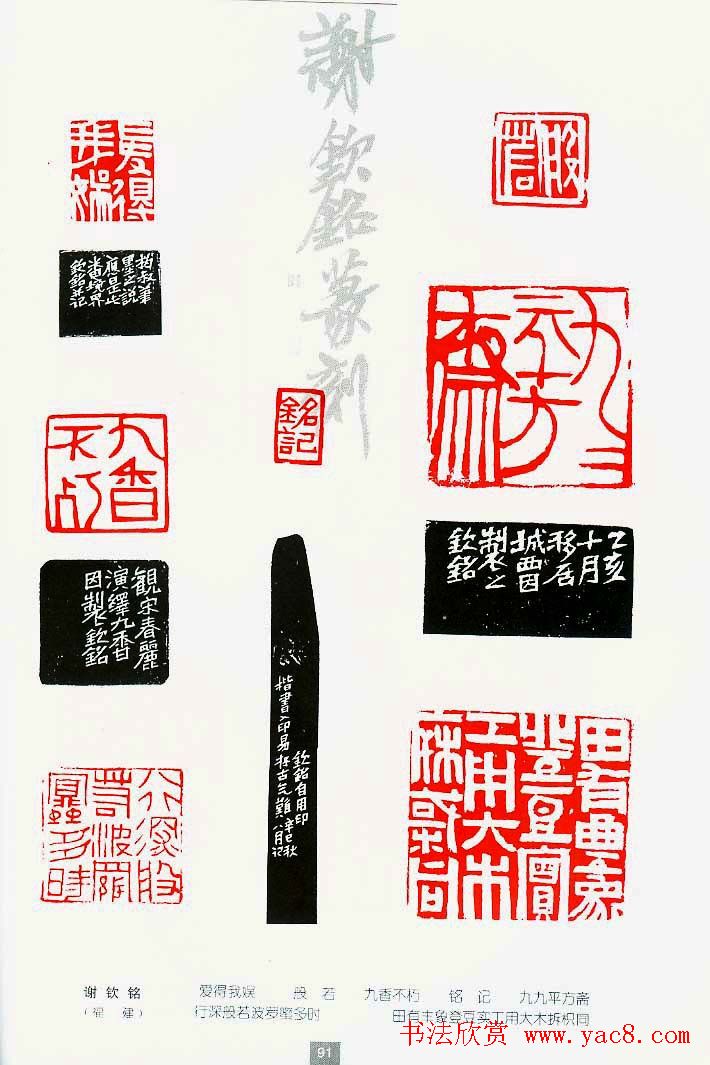 謝欽銘篆刻
愛得我娛
欽銘並記
般若
九九平方齋
乙亥
十月
移居
城西因
製之
欽銘
銘記
九香不朽
観宋春麗
演繹九香
因製欽銘
楷書入印易存古气難
欽銘自用印
辛巳秋
八月記
行深般若波羅蜜多時
谢钦铭
(福 建)
爱得我娱 般若 九香不朽 铭记 九九平方斋
行深般若波罗密多时 田有丰象登豆实工用大木拆枳同
91
书法欣赏 www.yac8.com